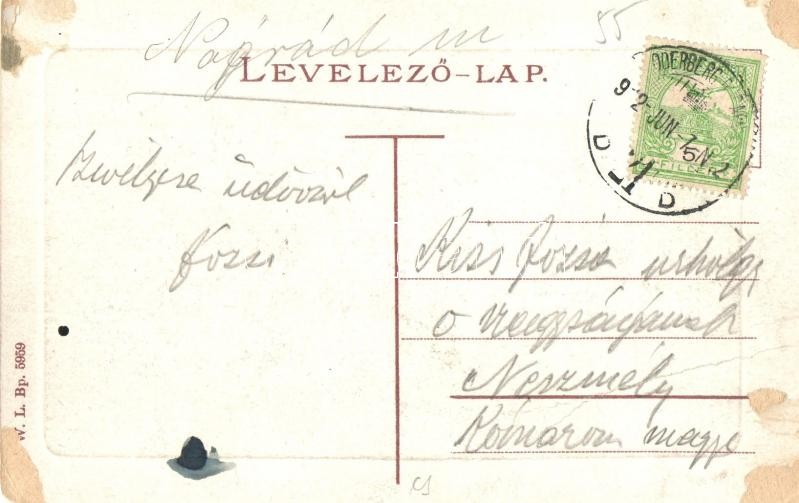 Nógrád m
55
LEVELEZŐ-LAP.
ODERBERG
912 JUN -7 5N 2
FILLÉR
üdvözöl
Józsi
Kiss József
ő nagyságának
Neszmély
Komárom megye
W. L. Bp. 5959